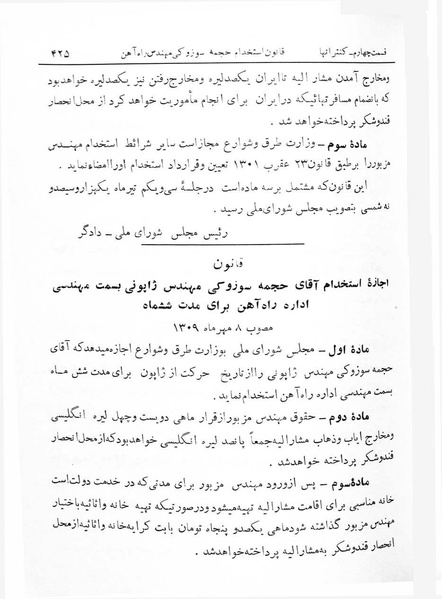 قسمت چهارم - کنتراتها
قانون استخدام حجمه سوزوکی مهندس راه آهن
۴۲۵
ومخارج آمدن مشار الیه تا ایران یکصد لیره و مخارج رفتن نیز یکصد لیره خواهد بود
که بانضمام مسافرتهائیکه در ایران برای انجام مأموریت خواهد کرد از محل انحصار
قندوشکر پرداخته خواهد شد .
مادۀ سوم - وزارت طرق و شوارع مجاز است سایر شرائط استخدام مهندس
مزبور را بر طبق قانون ۲۳ عقرب ۱۳۰۱ تعیین و قرارداد استخدام او را امضاء نماید .
این قانون که مشتمل بر سه ماده است در جلسۀ سی و یکم تیر ماه یکهزار و سیصد و
نه شمسی بتصویب مجلس شورای ملی رسید .
رئیس مجلس شورای ملی - دادگر
قانون
اجازۀ استخدام آقای حجمه سوزوکی مهندس ژاپونی بسمت مهندسی
اداره راه آهن برای مدت ششماه
مصوب ۸ مهر ماه ۱۳۰۹
مادۀ اول - مجلس شورای ملی بوزارت طرق و شوارع اجازه میدهد که آقای
حجمه سوزوکی مهندس ژاپونی را از تاریخ حرکت از ژاپون برای مدت شش ماه
بسمت مهندسی اداره راه آهن استخدام نماید .
مادۀ دوم - حقوق مهندس مزبور از قرار ماهی دویست و چهل لیره انگلیسی
و مخارج ایاب و ذهاب مشار الیه جمعاً پانصد لیره انگلیسی خواهد بود که از محل انحصار
قندوشکر پرداخته خواهد شد .
مادۀ سوم - پس از ورود مهندس مزبور برای مدتی که در خدمت دولت است
خانه مناسبی برای اقامت مشار الیه تهیه میشود و در صورتیکه تهیه خانه و اثاثیه باختیار
مهندس مزبور گذاشته شود ماهی یکصد و پنجاه تومان بابت کرایه خانه و اثاثیه از محل
انحصار قندوشکر به مشار الیه پرداخته خواهد شد .